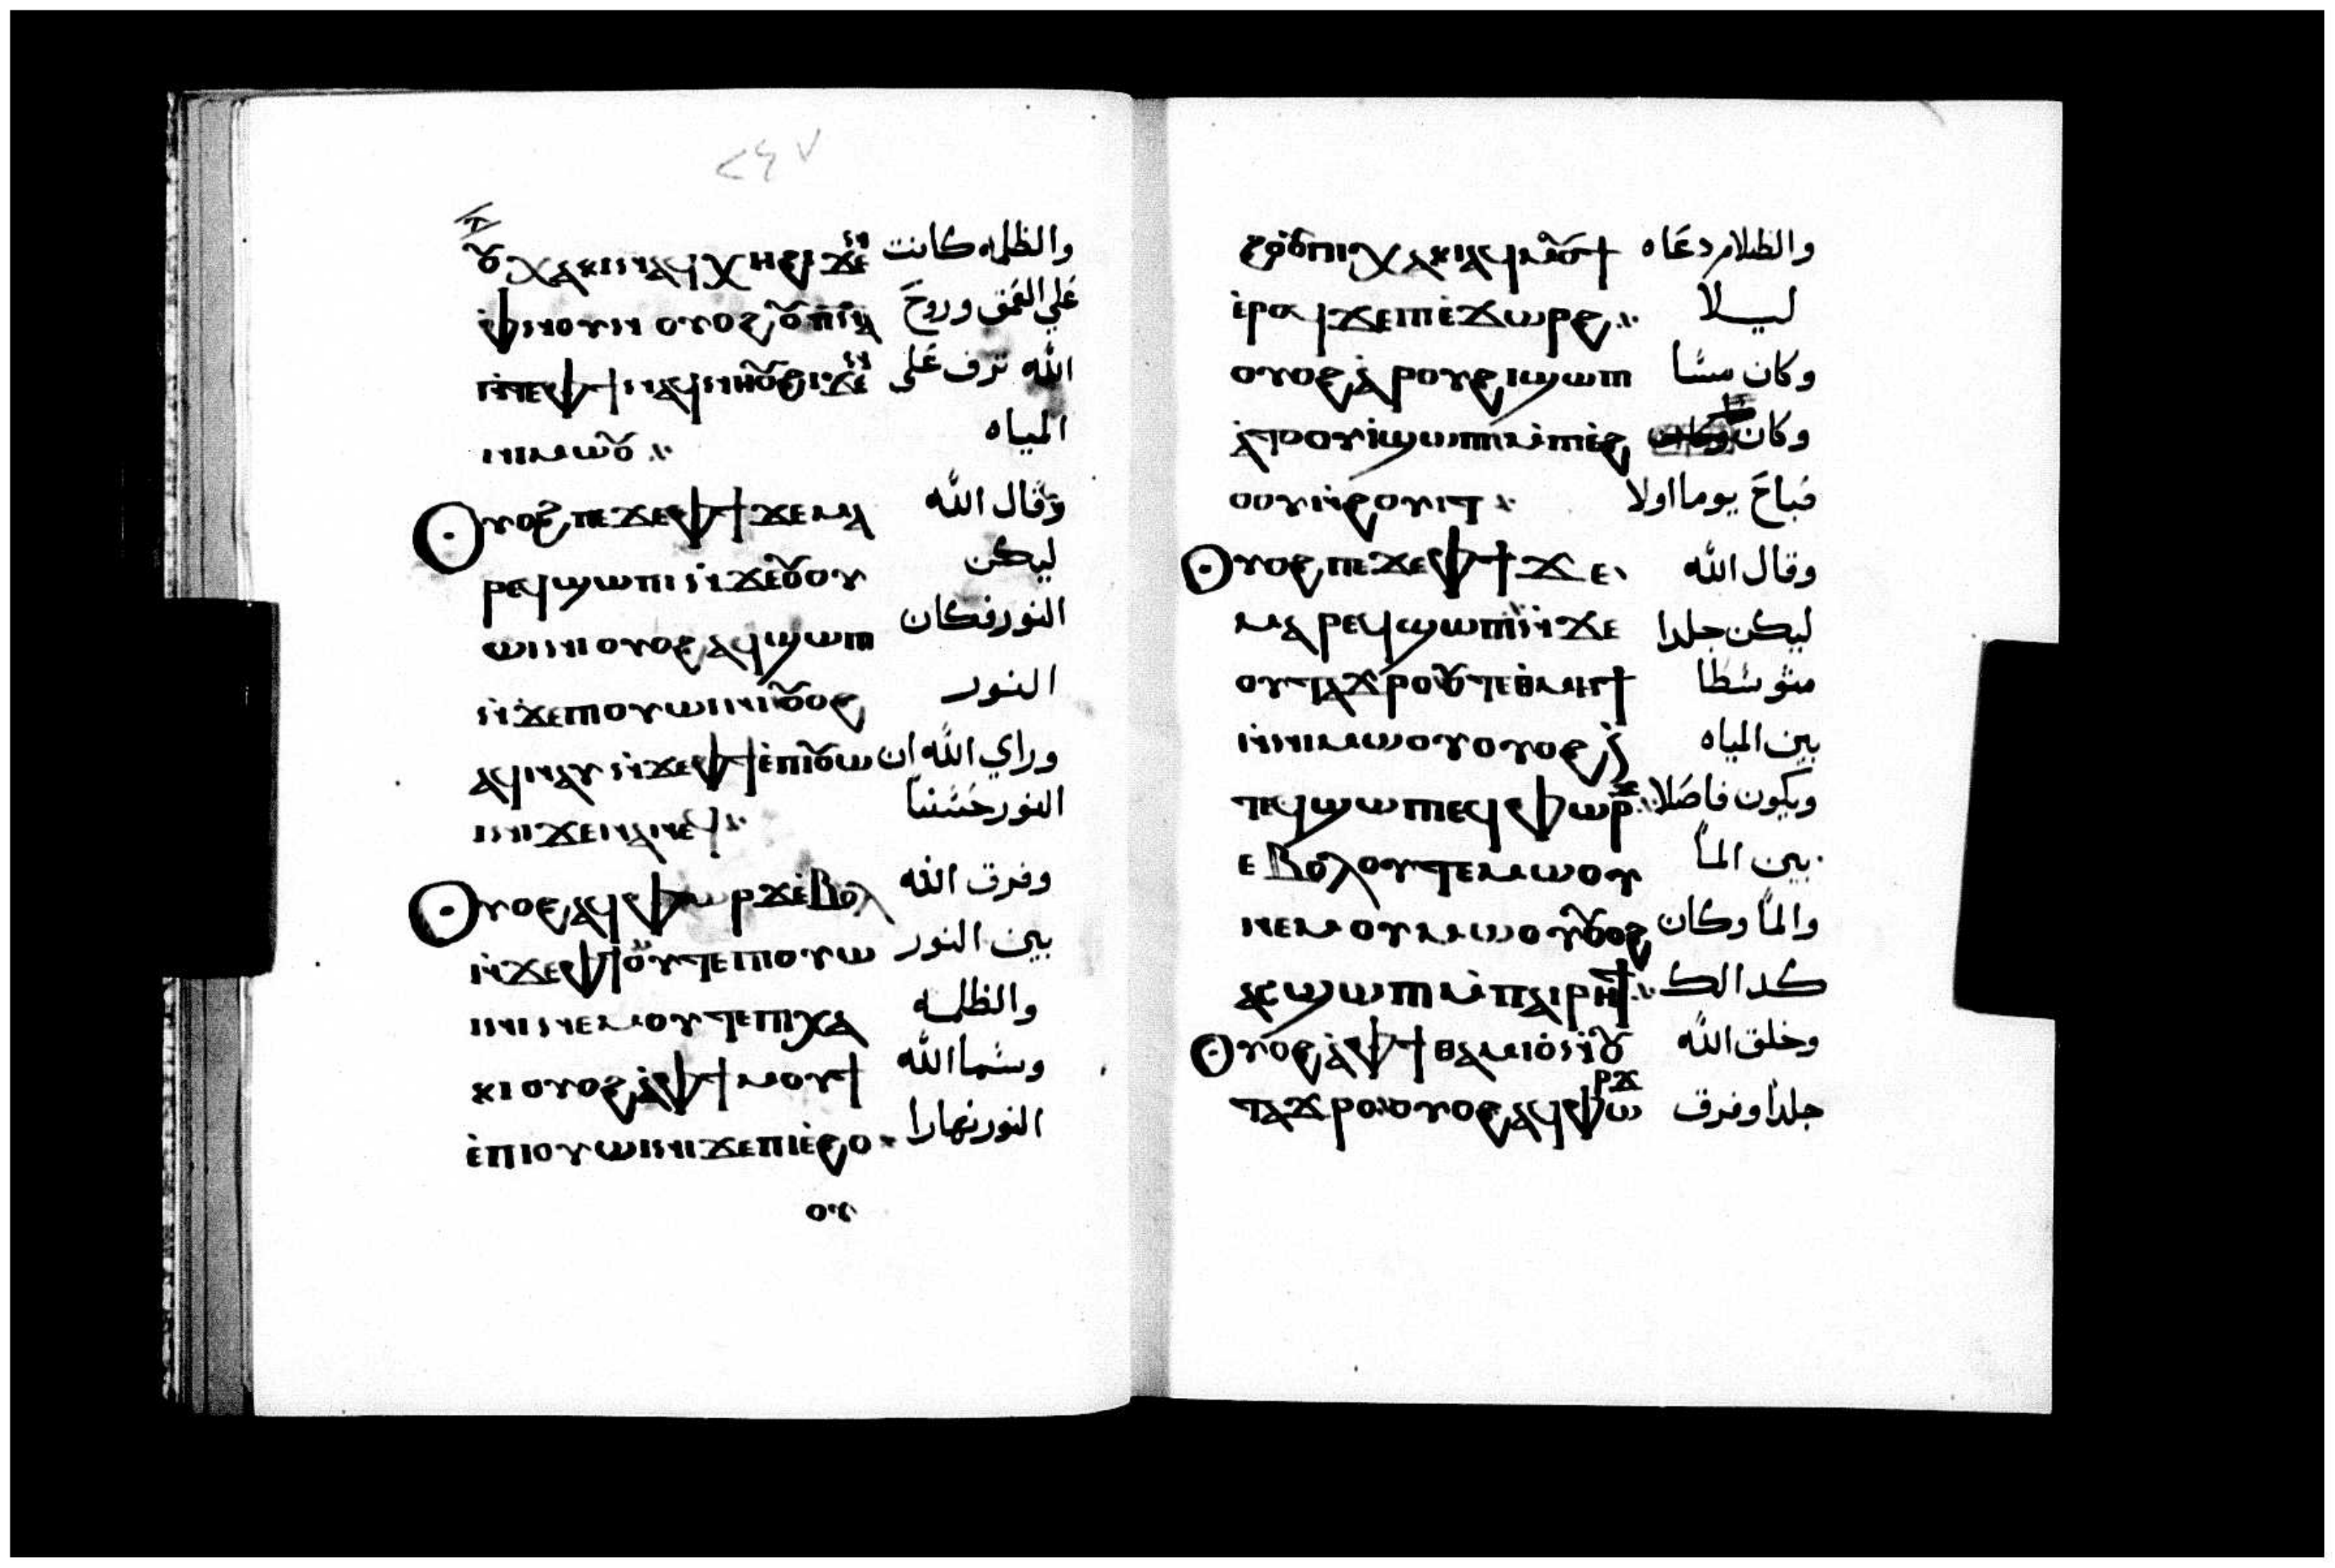 ⲟⲩⲭⲁⲕⲓ ⲛⲁϥⲭⲏ ϩⲓϫⲉⲛ والظلمه كانت
ⲫⲛⲟⲩⲛ ⲟⲩⲟϩ ⲟⲩⲡⲛⲁ علي العمق وروح
ⲛⲧⲉⲫϯ ⲛⲁϥⲛⲏⲟⲩ ϩⲓϫⲉⲛ الله ترف على
ⲛⲓⲙⲱⲟⲩ المياه
ⲟⲩⲟϩ ⲡⲉϫⲉⲫϯ ϫⲉⲙⲁ وقال الله
ⲣⲉϥϣⲱⲡⲓ ⲛϫⲉⲟⲩⲟⲩ ليكن
ⲱⲓⲛⲓ ⲟⲩⲟϩ ⲁϥϣⲱⲡⲓ النور فكان
ⲛϫⲉⲡⲓⲟⲩⲱⲓⲛⲓ ⲟⲩⲟϩ النور
ⲁϥⲛⲁⲩ ⲛϫⲉⲫϯ ⲉⲡⲓⲟⲩⲱ وراي الله ان
ⲓⲛⲓ ϫⲉⲛⲁⲛⲉϥ النور حسننا
ⲟⲩⲟϩ ⲁϥⲫⲱⲣϫ ⲉⲃⲟⲗ وفرق الله
ⲛϫⲉⲫϯ ⲟⲩⲧⲉⲡⲓⲟⲩⲱ بين النور
ⲓⲛⲓ ⲛⲉⲙ ⲟⲩⲧⲉⲡⲓⲭⲁ والظلمه
ⲕⲓ ⲟⲩⲟϩ ⲁⲫϯ ⲙⲟⲩϯ وسما الله
ⲉⲡⲓⲟⲩⲱⲓⲛⲓ ϫⲉⲡⲓⲉϩⲟ النور نهارا
ⲟⲩ
ⲟⲩⲟϩ ⲡⲓⲭⲁⲕⲓ ⲁϥⲙⲟⲩϯ والظلام دعاه
ⲉⲣⲟϥ ϫⲉⲡⲓⲉϫⲱⲣϩ ليلا
ⲟⲩⲟϩ ⲁⲣⲟⲩϩⲓ ϣⲱⲡⲓ وكان مسا
ⲁⲧⲟⲟⲩⲓ ϣⲱⲡⲓ ⲙⲡⲓⲉϩ وكان
ⲟⲟⲩ ⲛϩⲟⲩⲓⲧ صباح يوما اولا
ⲟⲩⲟϩ ⲡⲉϫⲉⲫϯ ϫⲉ وقال الله
ⲙⲁⲣⲉϥϣⲱⲡⲓ ⲛϫⲉ ليكن جلدا
ⲟⲩⲧⲁϫⲣⲟ ⲟⲩⲧⲉⲑⲙⲏϯ متوسطا
ⲛⲛⲓⲙⲱⲟⲩ ⲟⲩⲟϩ بين المياه
ⲧⲉϥϣⲱⲡⲓ ⲉϥⲫⲱⲣϫ ويكون فاصلا
ⲉⲃⲟⲗ ⲟⲩⲧⲉⲙⲱⲟⲩ بين الما
ⲛⲉⲙ ⲟⲩⲙⲱⲟⲩ ⲟⲩⲟϩ والما وكان
ⲁⲥϣⲱⲡⲓ ⲙⲡⲁⲓⲣⲏϯ كدالك
ⲟⲩⲟϩ ⲁⲫϯ ⲑⲁⲙⲓⲟ ⲛⲟⲩ وخلق الله
ⲧⲁϫⲣⲟ ⲟⲩⲟϩ ⲁϥⲫⲱⲣϫ جلدا وفرق